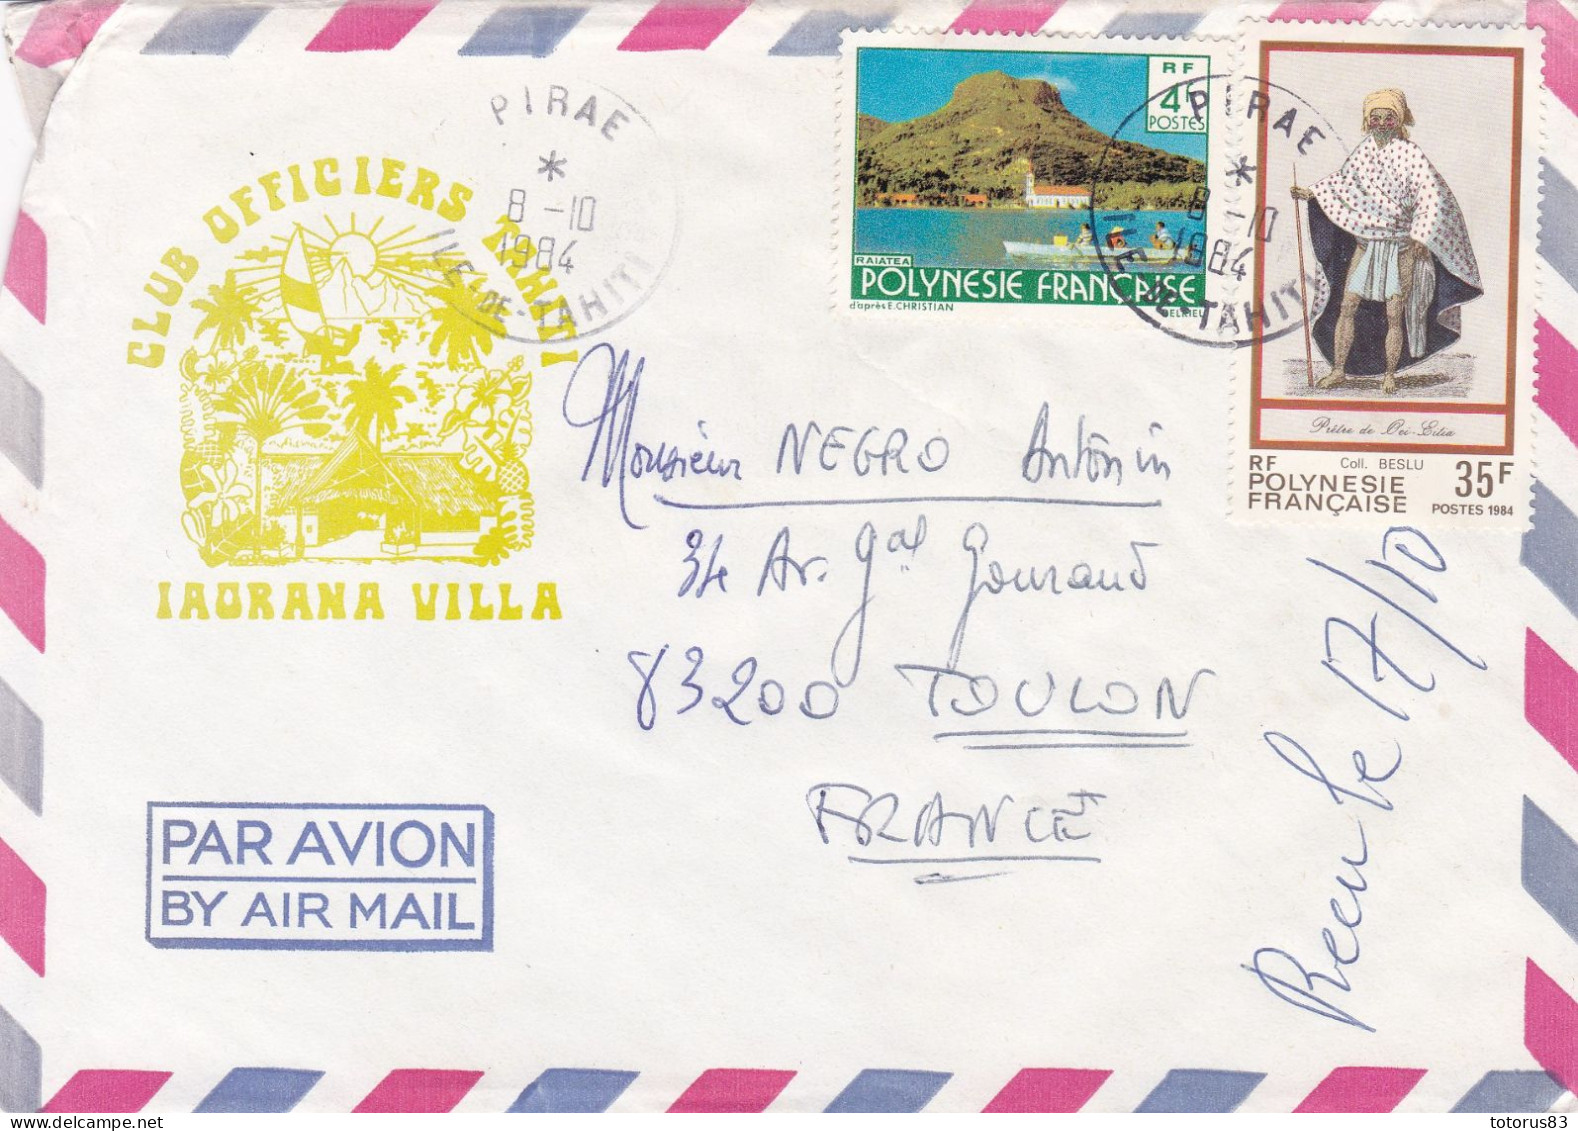 CLUB OFFICIERS TAHITI
IAORANA VILLA
PIRAE
*
8-10
1984
ILE-DE-TAHITI
RF
4F
POSTES
RAIATEA
POLYNESIE FRANÇAISE
d'après E.CHRISTIAN
DELRIEU
PIRAE
*
8-10
1984
ILE-DE-TAHITI
Prêtre de Oei-Eitia
Coll. BESLU
RF
POLYNESIE
FRANÇAISE
35F
POSTES 1984
Monsieur NEGRO Antonin
34 Av. Gal Gouraud
83200 TOULON
FRANCE
Recu le 17/10
PAR AVION
BY AIR MAIL
totorus83